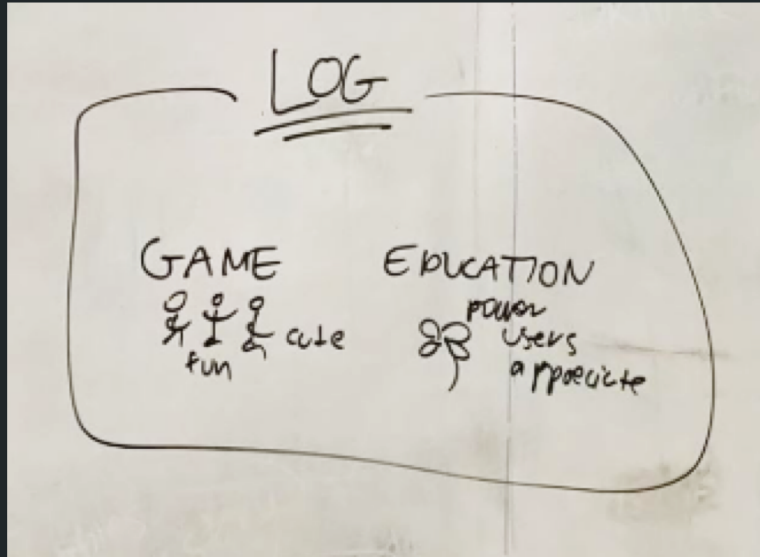 LOG
GAME
cute
fun
EDUCATION
power
users
appreciate